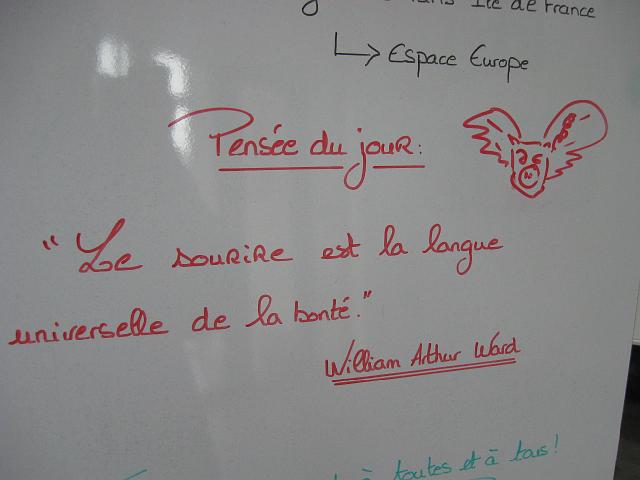 Île de France
Espace Europe
Pensée du jour:
"Le sourire est la langue
universelle de la bonté."
William Arthur Ward
à toutes et à tous!